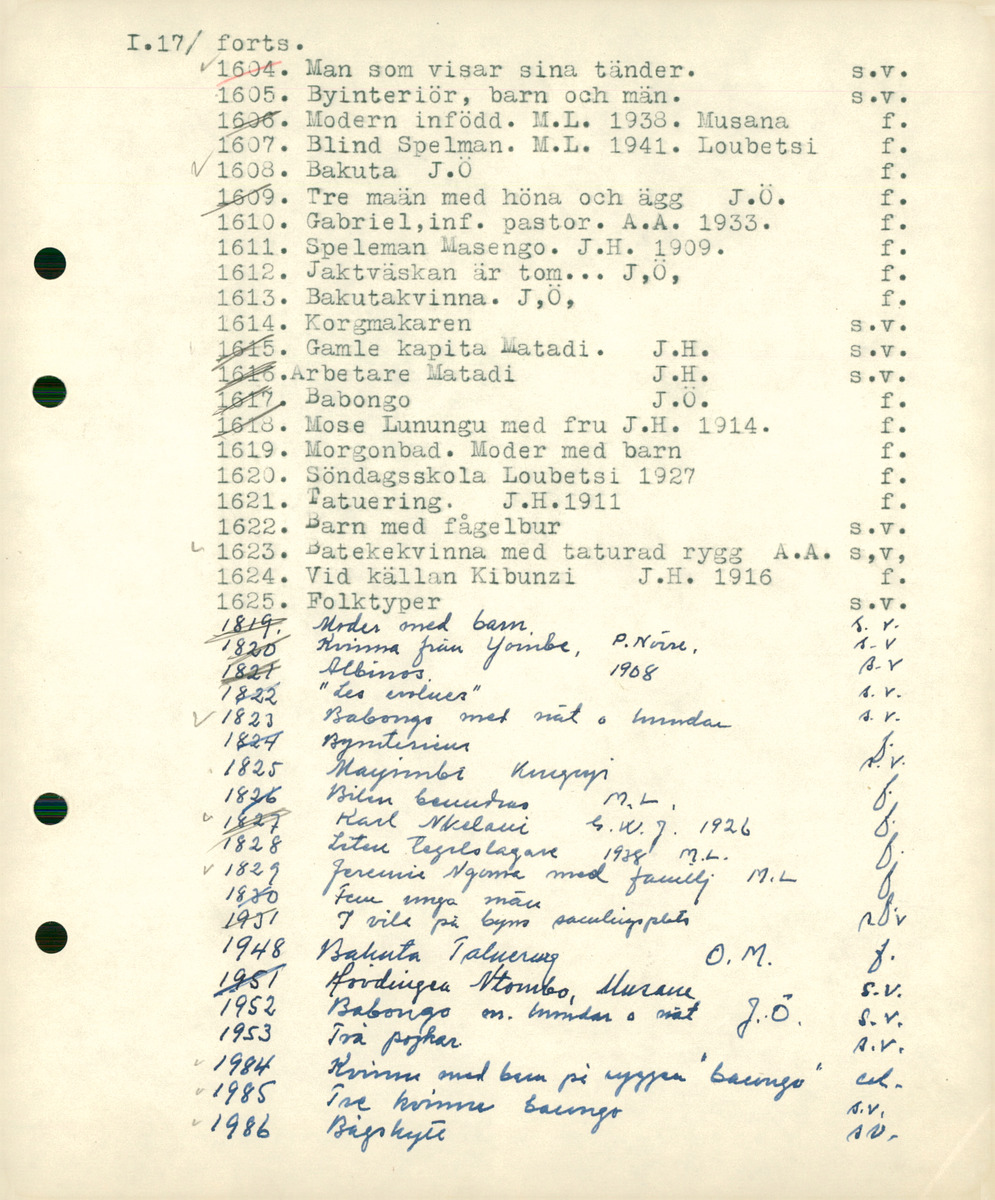 I.17/ forts.
1604. Man som visar sina tänder. s.v.
1605. Byinteriör, barn och män. s.v.
1606. Modern infödd. M.L. 1938. Musana f.
1607. Blind Spelman. M.L. 1941. Loubetsi f.
1608. Bakuta J.Ö f.
1609. Tre maän med höna och ägg J.Ö. f.
1610. Gabriel,inf. pastor. A.A. 1933. f.
1611. Speleman Masengo. J.H. 1909. f.
1612. Jaktväskan är tom... J,Ö, f.
1613. Bakutakvinna. J,Ö, f.
1614. Korgmakaren s.v.
1615. Gamle kapita Matadi. J.H. s.v.
1616.Arbetare Matadi J.H. s.v.
1617. Babongo J.Ö. f.
1618. Mose Lunungu med fru J.H. 1914. f.
1619. Morgonbad. Moder med barn f.
1620. Söndagsskola Loubetsi 1927 f.
1621. Tatuering. J.H.1911 f.
1622. Barn med fågelbur s.v.
1623. Batekekvinna med taturad rygg A.A. s,v,
1624. Vid källan Kibunzi J.H. 1916 f.
1625. Folktyper s.v.
1819. Moder med barn. s.v.
1820 Kvinna från Yombe, P. Noire. s.v
1821 Albinos. 1908 s.v
1822 "Les evolues" s.v.
1823 Babongo med nät o hundar s.v.
1824 Byinteriör f.
1825 Mayombe s.v.
1826 Bilen beundras M.L. f.
1827 Karl Nkelani G.W.J. 1926 f.
1828 Liten tegelslagare 1938 M.L. f.
1829 Jeremie Ngoma med familj M.L f
1830 Fem unga män f.
1931 I vila på byns samlingsplats s.v
1948 Bakuta Tatuering O.M. f.
1951 Hövdingen Ntombo, Musana s.v.
1952 Babongo m. hundar o nät J.Ö. s.v.
1953 Två pojkar s.v.
1984 Kvinna med barn på ryggen "baongo" col.
1985 Tre kvinnor baongo s.v.
1986 Bågskytt s.v.